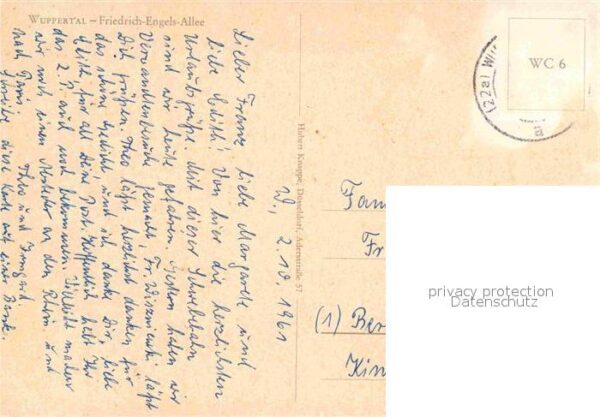 WUPPERTAL – Friedrich-Engels-Allee
W., 2.10.1961
Lieber Franz, liebe Margarete und
liebe Edith! Von hier die herzlichsten
Urlaubsgrüße. Mit dieser Schwebebahn
sind wir heute gefahren. Gestern haben wir
Verwandtenbesuche gemacht, Fr. läßt
Dich grüßen. Theo läßt herzlichst danken für
das schöne Gedicht und ich danke Dir, liebe
Edith, für all Deine Post. Hoffentlich habt Ihr
das 2. P. auch noch bekommen. Vielleicht machen
wir noch einen Abstecher an den Rhein und
nach Paris. Theo und Irmgard.
Schreibe diese Karte auf einer Bank.
Hubert Knuppe, Düsseldorf, Adersstraße 57
(22a) Wu
WC 6
Fam
Fr
(1) Ber
Kin
privacy protection
Datenschutz